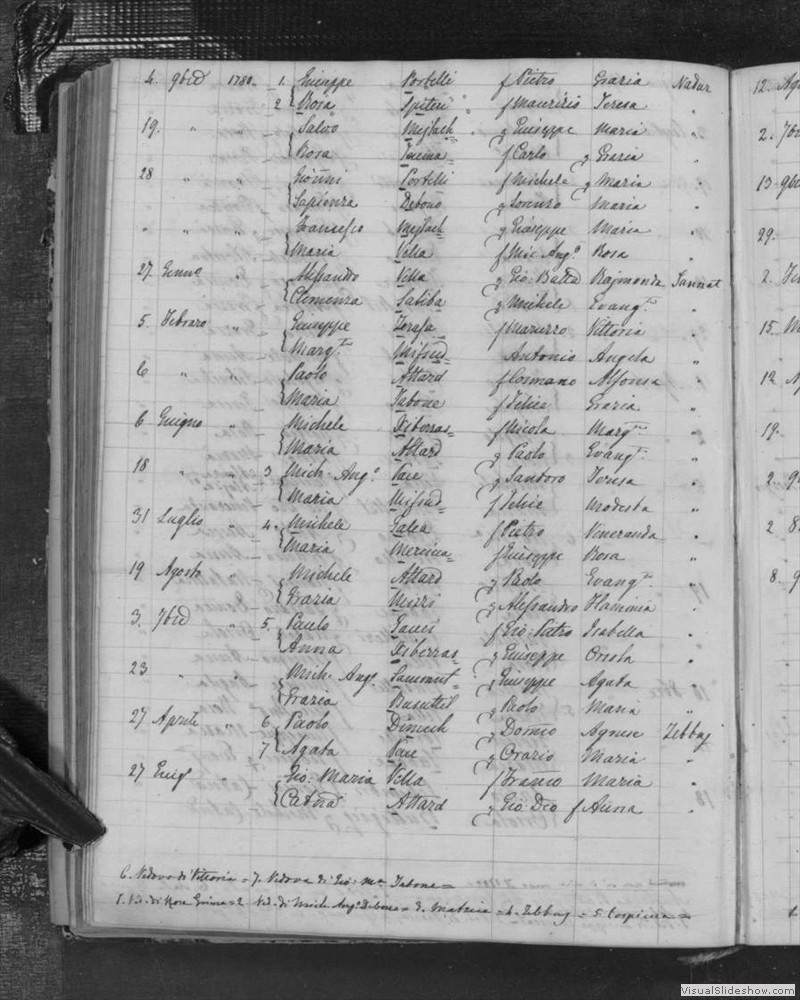 4. 9bre 1780. 1. Giuseppe Portelli f Pietro Grazia Nadur
2 Rosa Spiteri f Maurizio Teresa "
19. " " Salvo Mejlach g Giuseppe Maria "
Rosa f Carlo g Grazia "
28 " " Gio:nni Portelli f Michele g Maria "
Sapienza Debono g Lorenzo Maria "
" " " Francesco Mejlach g Giuseppe Maria "
Maria Vella f Mic: Ang.o Rosa "
27. " Alessandro Vella g Gio: Batta Rajmonda Sannat
Clemenza Saliba g Michele Evang.ta "
5. Febraro " Giuseppe f Marizzo Vittoria "
Marg.ta Mifsud Antonio Angela "
6 " " Paolo Attard f Cosmano Alfonsa "
Maria Tabone f Felice Grazia "
6 Giugno " Michele Xiberras f Nicola Marg.ta "
Maria Attard g Paolo Evang.ta "
18 " " 3 Mich: Ang.o Pace g Santoro Teresa "
Maria Mifsud f Felice Modesta "
31 Luglio " 4. Michele Galea f Pietro Veneranda "
Maria Mercieca f Giuseppe Rosa "
19 Agosto " Michele Attard g Paolo Evang.ta "
Grazia Mizzi g Alessandro Flaminia "
3. 7bre " 5. Paulo Gauci f Gio: Pietro Isabella "
Anna Xiberras g Giuseppe Orsola "
23 " " Mich: Ang.o Sammut g Giuseppe Agata "
Grazia Busuttil g Paolo Maria "
27 Aprile " 6 Paolo Dimech g Dom:co Agnese Zebbug
7 Agata Pace g Orazio Maria "
27 Giug.o " Gio: Maria Vella f Franco Maria "
Cat:na Attard g Gio: Deo f Anna "
6. Vedovo di Vittoria = 7. Vedova di Gio: M.a Tabone =
1. Ved. di = 2 Ved. di Mich. Ang.o Debono = 3. Matrice = 4. Zebbug = 5. Cospicua =
12. Ag
2. 7b
13. 9b
29.
2.
15. M
12 A
19.
2. 9
2 8
8. 9
VisualSlideshow.com